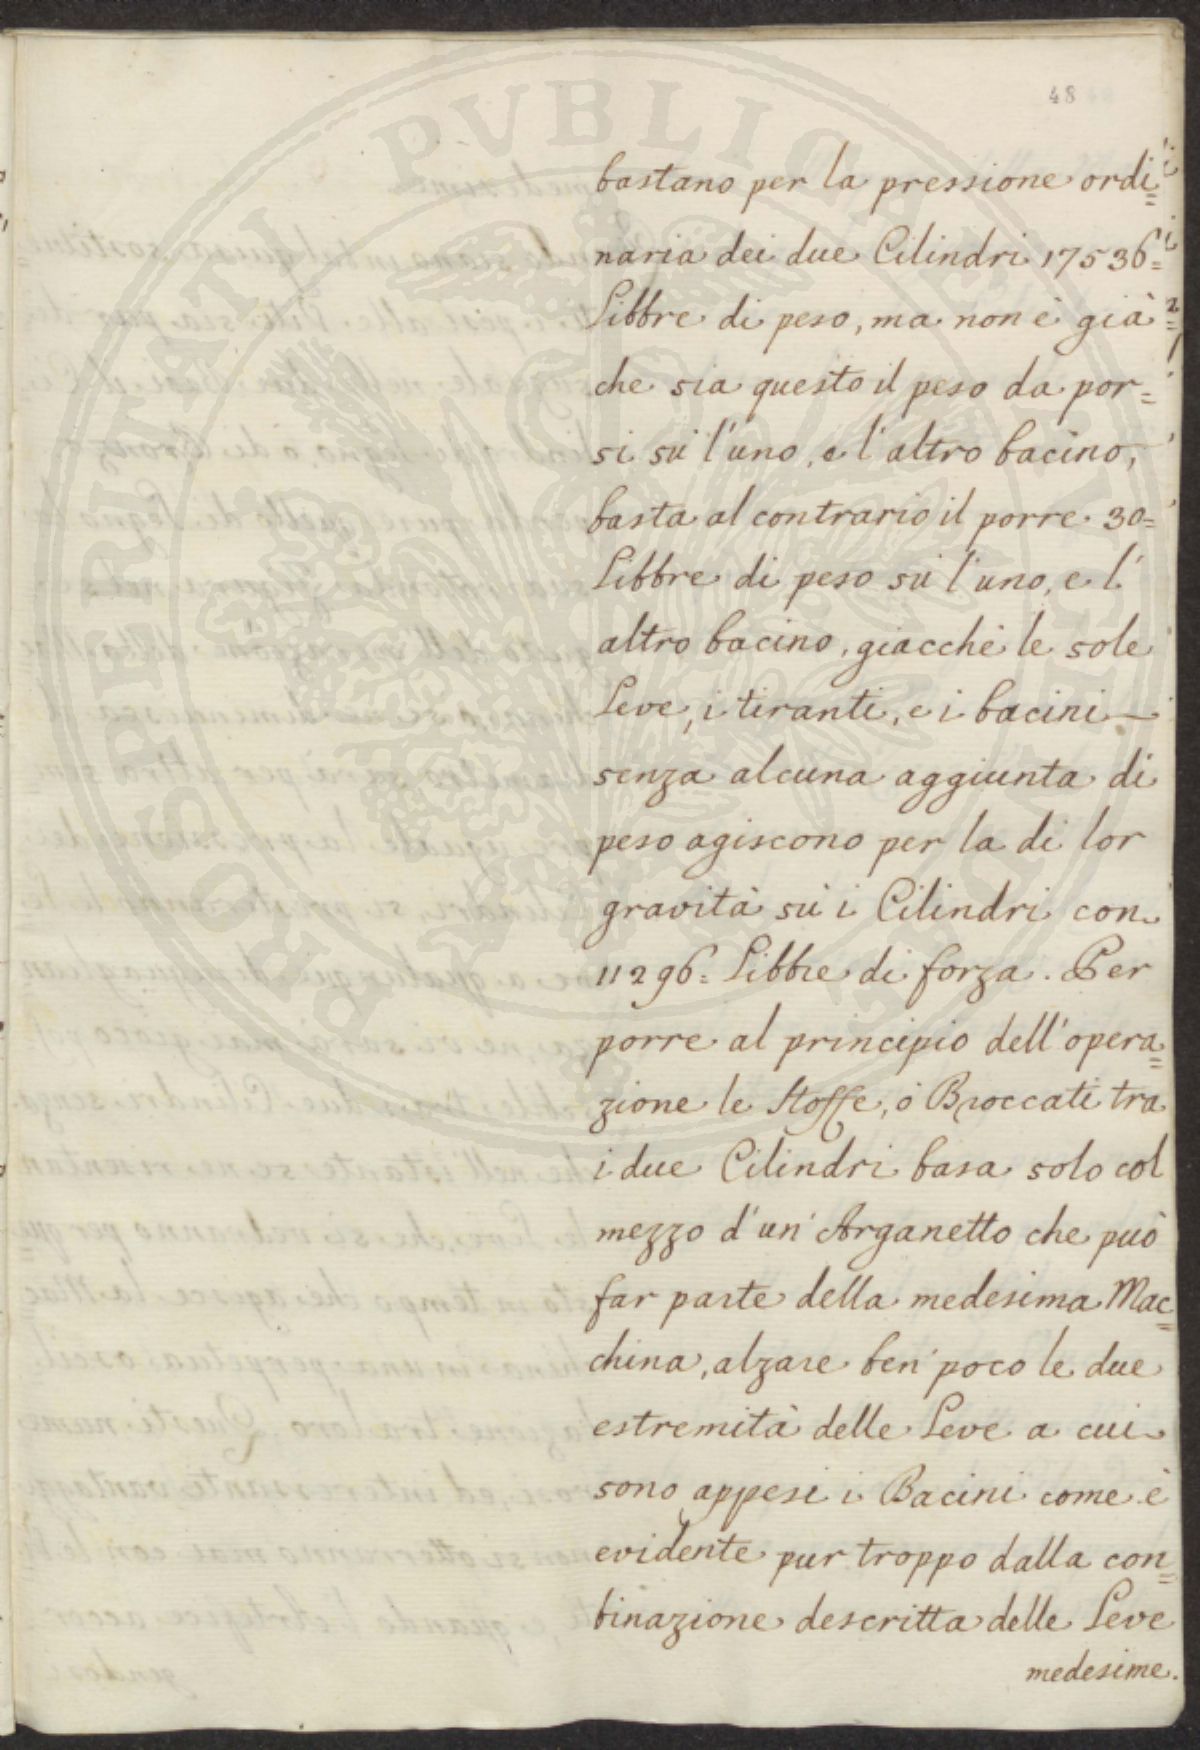 48
bastano per la pressione ordi=
naria dei due Cilindri 17536=
Libbre di peso, ma non è già
che sia questo il peso da por=
si sù l'uno, e l'altro bacino,
basta al contrario il porre 30=
Libbre di peso sù l'uno, e l'
altro bacino, giacchè le sole
Leve, i tiranti, e i bacini —
senza alcuna aggiunta di
peso agiscono per la di lor
gravità sù i Cilindri con
11296= Libbre di forza. Per
porre al principio dell'opera=
zione le Stoffe, ò Broccati tra
i due Cilindri basa solo col
mezzo d'un'Arganetto che può
far parte della medesima Mac=
china, alzare ben'poco le due
estremità delle Leve a cui
sono appesi i Bacini come è
evidente pur troppo dalla con=
binazione descritta delle Leve
medesime.
PROSPERITATI PVBLICAE